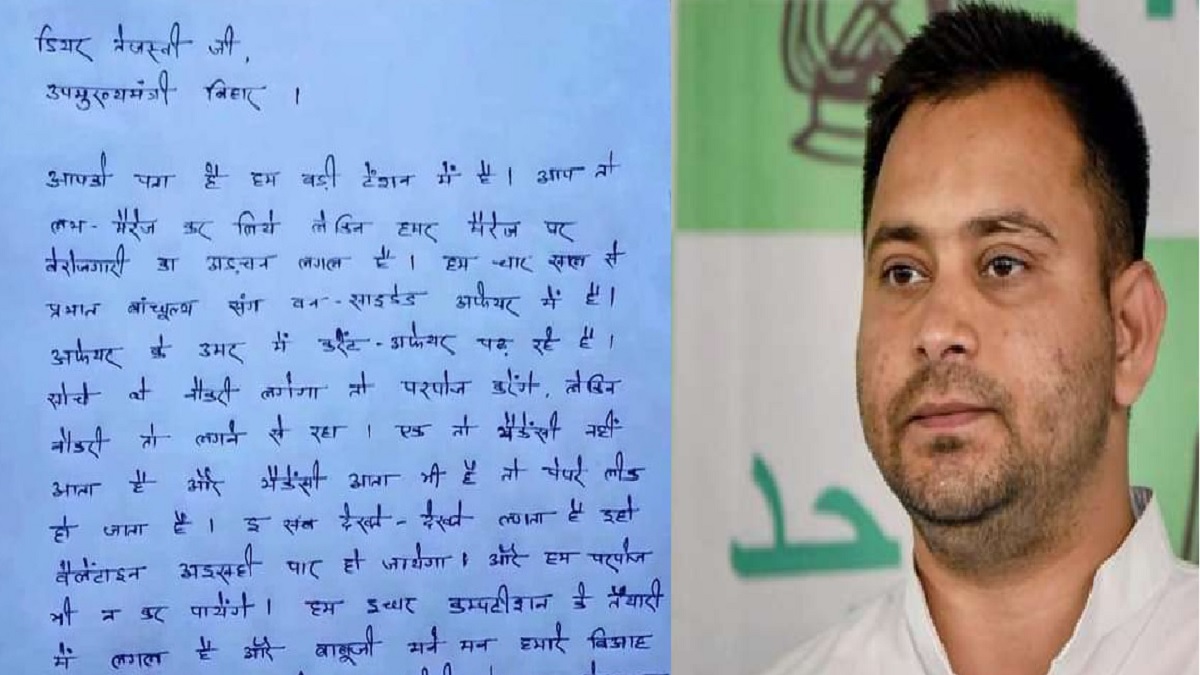 डियर तेजस्वी जी,
उपमुख्यमंत्री बिहार ।
आपको पता है हम बड़ी टेंशन में है । आप तो
लभ-मैरेज कर लिये लेकिन हमर मैरेज पर
बेरोजगारी का अड़चन लगल है । हम चार साल से
प्रभात बांधुल्य संग वन-साइडेड अफेयर में है ।
अफेयर के उमर में करेंट-अफेयर पढ़ रहे है ।
सोचे थे नौकरी लगेगा तो परपोज करेंगे, लेकिन
नौकरी तो लगने से रहा । एक तो भैकेंसी नहीं
आता है और भैकेंसी आता भी है तो पेपरे लीक
हो जाता है । इ सब देखते-देखते लगता है इहो
वैलेंटाइन अइसही पार हो जायेगा । और हम परपोज
भी न कर पायेंगे । हम इधर कम्पटीशन के तैयारी
में लगल है और बाबूजी मने मन हमारे बिआह
حد